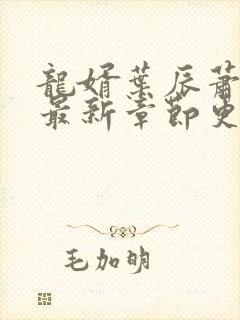 龍婿葉辰蕭
最新章節更
毛加明